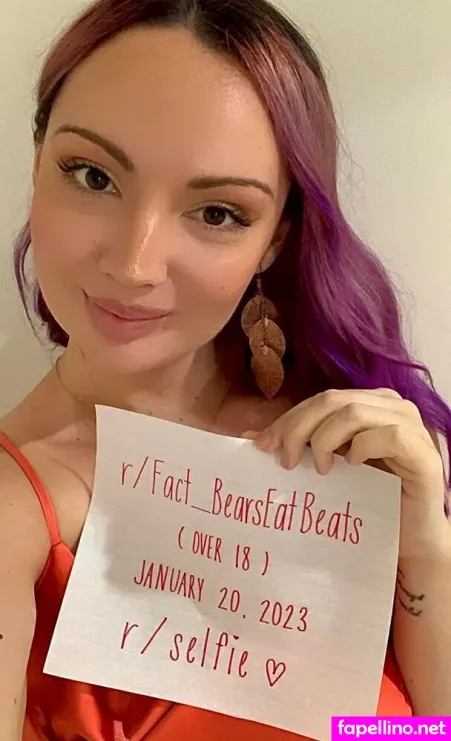 r/Fact_BearsEatBeats
( OVER 18 )
JANUARY 20, 2023
r/selfie ♡
fapellino.net